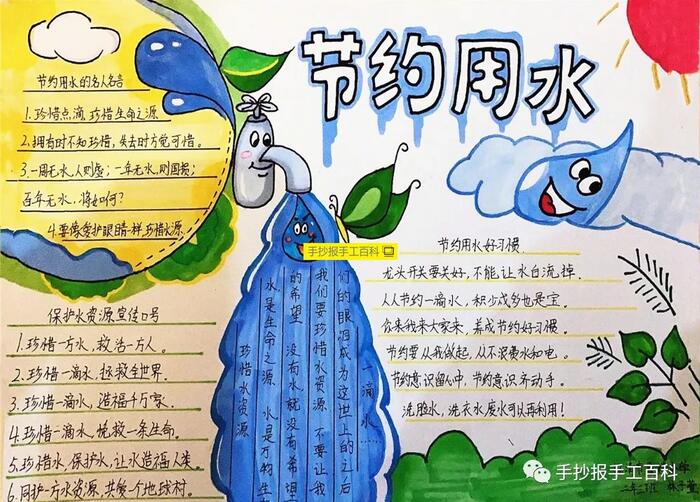 节约用水
节约用水的名人名言
1.珍惜点滴 珍惜生命之源
2.拥有时不知珍惜,失去时方觉可惜。
3.一周无水,人则虚;一年无水,则国损;
百年无水,将如何?
4.要像爱护眼睛一样珍惜水源
保护水资源宣传口号
1.珍惜一方水,救活一片人。
2.珍惜一滴水,拯救全世界.
3.珍惜一滴水,造福千万家.
4.珍惜一滴水,挽救一条生命.
5.珍惜水,保护水,让水造福人类。
6.同护一方水资源,共饮一个地球村。
手抄报手工百科
一滴水……
们的眼泪成为这世上的之后
我们要珍惜水资源 不要让我
的希望 没有水就没有希望
水是生命之源 水是万物生
珍惜水资源
节约用水好习惯
龙头开要关好,不能让水白流掉.
人人节约一滴水,积少成多也是宝。
你来我来大家来,养成节约好习惯。
节约要从我做起,从不浪费水和电。
节约意识留心中,节约意识齐动手。
洗脸水,洗衣水废水可以再利用!
手抄报手工百科